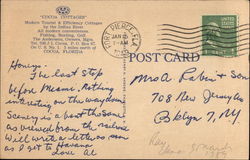 "COCOA COTTAGES"
Modern Tourist & Efficiency Cottages
by the Indian River
All modern conveniences.
Fishing, Boating, Golf.
The Andersons, Owners, Mgrs.
Tel. 798-J 1, Cocoa, P. O. Box 67.
On U. S. No. 1, 3 miles north of
COCOA, FLORIDA
FORT PIERCE, FLA.
JAN 21
7-AM
POST CARD
Honey:
The last stop
before Miami. Nothing
interesting on the way down.
Scenery is about the same
as viewed from the
Will write a letter
as I get to Havana
Love Al
Mrs A. Rabin & Son
708 New Jersey Ave
Bklyn 7, NY